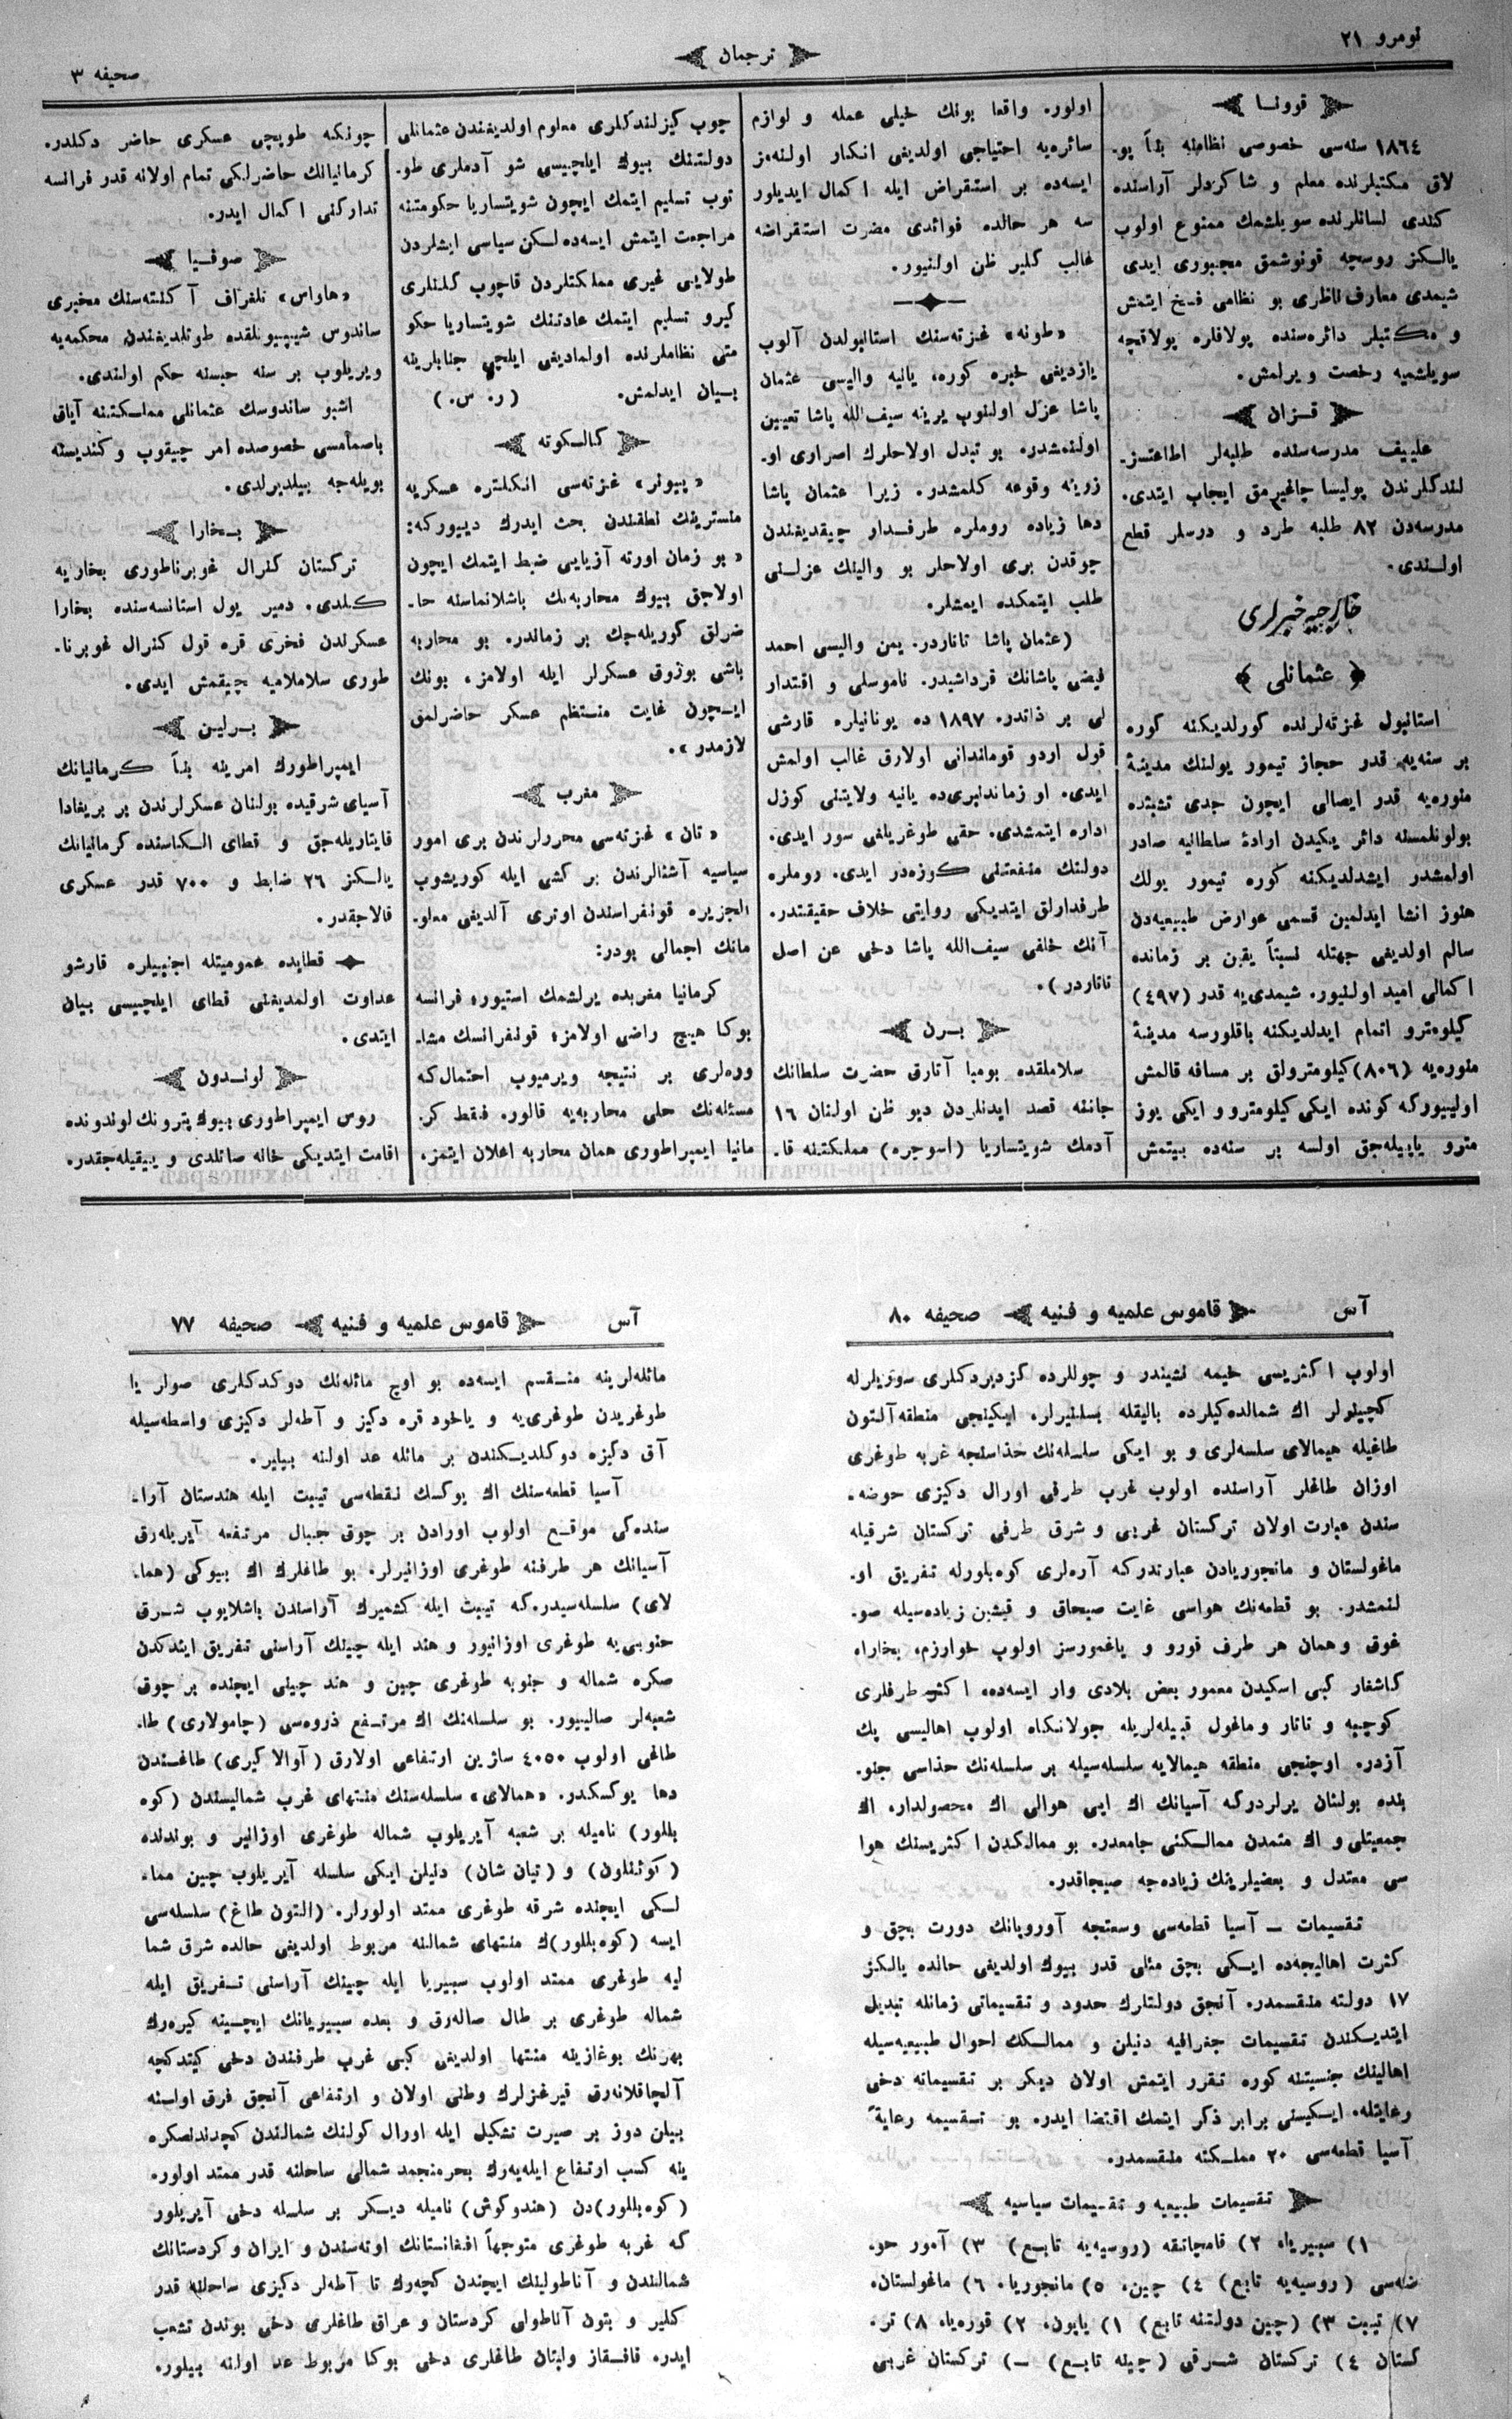 نومرو ٢١
ترجمان
صحيفه ٣
قوونا
١٨٦٤ سنه‌سى خصوصى نظامنه بنأ پو-
لاق مكتبلرنده معلم و شاكردلر آراسنده
كندى لسانلرنده سويلشمك ممنوع اولوب
يالكز روسچه قونوشمق مجبورى ايدى
شيمدى معارف ناظرى بو نظامى فسخ ايتمش
و مكتبلر دائره‌سنده پولاقلره پولاقچه
سويلشميه رخصت ويرلمش.
قزان
علييف مدرسه‌سنده طلبه‌لر اطاعتسز-
لندكلرندن پوليسا چاغيرمق ايجاب ايتدى.
مدرسه‌دن ٨٢ طلبه طرد و درسلر قطع
اولندى.
خارجيه خبرلرى
عثمانلى
استانبول غزته‌لرنده كورلديكنه كوره
بر سنه‌يه قدر حجاز تيمور يولنك مدينۀ
منوره‌يه قدر ايصالى ايچون جدى تشبثده
بولونلمسنه دائر يكيدن ارادۀ سلطانيه صادر
اولمشدر ايشدلديكنه كوره تيمور يولك
هنوز انشا ايدلمين قسمى عوارض طبيعيه‌دن
سالم اولديغى جهتله نسبتاً يقين بر زمانده
اكمالى اميد اولنيور. شيمدى‌يه قدر (٤٩٧)
كيلومترو اتمام ايدلديكنه باقلورسه مدينۀ
منوره‌يه (٨٠٦) كيلومترولق بر مسافه قالمش
اولييوركه كونده ايكى كيلومترو و ايكى يوز
مترو ياپيله‌جق اولسه بر سنه‌ده بيتمش
اولور. واقعا بونك خيلى عمله و لوازم
سائره‌يه احتياجى اولديغى انكار اولنه‌مز
ايسه‌ده بر استقراض ايله اكمال ايديلور
سه هر حالده فوائدى مضرت استقراضه
غالب كلير ظن اولنيور.
«طونه» غزته‌سنك استانبولدن آلوب
يازديغى خبره كوره، يانيه واليسى عثمان
پاشا عزل اولنوب يرينه سيف الله پاشا تعيين
اولنمشدر. بو تبدل اولاحلرك اصرارى او-
زرينه وقوعه كلمشدر. زيرا عثمان پاشا
دها زياده روملره طرفدار چيقديغندن
چوقدن برى اولاحلر بو والينك عزلنى
طلب ايتمكده ايمشلر.
(عثمان پاشا تاتاردر. يمن واليسى احمد
فيضى پاشانك قرداشيدر. ناموسلى و اقتدار
لى بر ذاتدر. ١٨٩٧ ده يونانيلره قارشى
قول اردو قوماندانى اولارق غالب اولمش
ايدى. او زماندنبرى‌ده يانيه ولايتنى كوزل
اداره ايتمشدى. حقى طوغريلغى سور ايدى.
دولتك منفعتنى كوزه‌در ايدى. روملره
طرفدارلق ايتديكى روايتى خلاف حقيقتدر.
آنك خلفى سيف‌الله پاشا دخى عن اصل
تاتاردر).
برن
سلاملقده بومبا آتارق حضرت سلطانك
جاننه قصد ايدنلردن ديو ظن اولنان ١٦
آدمك شويتساريا (اسوجره) مملكتنه قا-
چوب كيزلندكلرى معلوم اولديغندن عثمانلى
دولتنك بيوك ايلچيسى شو آدملرى طو-
توب تسليم ايتمك ايچون شويتساريا حكومتنه
مراجعت ايتمش ايسه‌ده لسكن سياسى ايشلردن
طولايى غيرى مملكتلردن قاچوب كلنلرى
كيرو تسليم ايتمك عادتنك شويتساريا حكو
متى نظاملرنده اولماديغى ايلچى جنابلرينه
بيان ايدلمش. (ر. س.)
كالسكوته
«پيونر» غزته‌سى انكلتره عسكريه
منسترينك نطقندن بحث ايدرك دييوركه:
«بو زمان اورته آزيايى ضبط ايتمك ايچون
اولاجق بيوك محاربه‌نك باشلانماسنه حا-
ضرلق كوريله‌جك بر زماندر. بو محاربه
باشى بوزوق عسكرلر ايله اولامز، بونك
ايچون غايت منتظم عسكر حاضرلمق
لازمدر».
مغرب
«تان» غزته‌سى محررلرندن برى امور
سياسيه آشنالرندن بر كشى ايله كوريشوب
الجزيره قونفراسندن اوترى آلديغى معلو-
ماتك اجمالى بودر:
كرمانيا مغربده يرلشمك استيور، فرانسه
بوكا هيچ راضى اولامز، قونفرانسك مشا-
وره‌لرى بر نتيجه ويرميوب احتمال‌كه
مسئله‌نك حلى محاربه‌يه قالور. فقط كر-
مانيا ايمپراطورى همان محاربه اعلان ايتمز.
چونكه طوپچى عسكرى حاضر دكلدر.
كرمانيانك حاضرلكى تمام اولانه قدر فرانسه
تداركنى اكمال ايدر.
صوفيا
«هاواس» تلغراف آكنته‌سنك مخبرى
ساندوس شيپيونلقده طوتلديغندن محكمه‌يه
ويريلوب بر سنه حبسنه حكم اولندى.
اشبو ساندوسك عثمانلى مملكتنه آياق
باصمامسى خصوصده امر چيقوب و كنديسنه
بويله‌جه بيلديرلدى.
بخارا
تركستان كنرال غوبرناطورى بخاريه
كلدى. دمير يول استانسه‌سنده بخارا
عسكرلرندن فخرى قره قول كنرال غوبرنا-
طورى سلاملاميه چيقمش ايدى.
برلين
ايمپراطورك امرينه بنأ كرمانيانك
آسياى شرقيده بولنان عسكرلرندن بر بريغادا
قايتاريله‌جق و قطاى الكاسنده كرمانيانك
يالكز ٢٦ ضابط و ٧٠٠ قدر عسكرى
قالاجقدر.
قطايده عموميتله اجنبيلره قارشو
عداوت اولمديغنى قطاى ايلچيسى بيان
ايتدى.
لوندون
روس ايمپراطورى بيوك پترونك لوندونده
اقامت ايتديكى خانه صاتلدى و ييقيله‌جقدر.
آس
قاموس علميه و فنيه
صحيفه ٨٠
اولوب اكثريسى خيمه نشيندر و چوللرده كزديردكلرى سوريلرله
كچينورلر اك شمالده‌كيلرده باليقله بسلنيرلر. ايكينجى منطقه آلتون
طاغيله هيمالاى سلسله‌لرى و بو ايكى سلسله‌نك حذاسنجه غربه طوغرى
اوزان طاغلر آراسنده اولوب غرب طرفى اورال دكيزى حوضه-
سندن عبارت اولان تركستان غربى و شرق طرفى تركستان شرقيله
ماغولستان و مانجوريادن عبارتدركه آره‌لرى كوه‌بلورله تفريق او-
لنمشدر. بو قطعه‌نك هواسى غايت صيجاق و قيشين زياده‌سيله صو-
غوق و همان هر طرف قورو و ياغمورسز اولوب خوارزم، بخارا،
كاشغار كبى اسكيدن معمور بعض بلادى وار ايسه‌ده، اكثر طرفلرى
كوچبه و تاتار و ماغول قبيله‌لريله جولانكاه اولوب اهاليسى پك
آزدر. اوچنجى منطقه هيمالايه سلسله‌سيله بر سلسله‌نك حذاسى جنو-
بنده بولنان يرلردركه آسيانك اك ايى هوالى اك محصولدار، اك
جمعيتلى و اك متمدن ممالكنى جامعدر. بو ممالكدن اكثريسنك هوا
سى معتدل و بعضيلرينك زياده‌جه صيجاقدر.
تقسيمات — آسيا قطعه‌سى وسعتجه آوروپانك دورت بچق و
كثرت اهاليجه‌ده ايكى بچق مثلى قدر بيوك اولديغى حالده يالكز
١٧ دولته منقسمدر. آنجق دولتلرك حدود و تقسيماتى زمانله تبديل
ايتديكندن تقسيمات جغرافيه دنيلن و ممالكك احوال طبيعيه‌سيله
اهالينك جنسيتنه كوره تقرر ايتمش اولان ديكر بر تقسيماته دخى
رعايتله، ايكيسنى برابر ذكر ايتمك اقتضا ايدر. بو تقسيمه رعايةً
آسيا قطعه‌سى ٢٠ مملكته منقسمدر.
تقسيمات طبيعيه و تقسيمات سياسيه
١) سيبيريا، ٢) قامچاتقه (روسيه‌يه تابع) ٣) آمور حو-
ضه‌سى (روسيه‌يه تابع) ٤) چين، ٥) مانجوريا، ٦) ماغولستان،
٧) تيبت ٣) (چين دولتنه تابع) ١) ياپون، ٢) قوره‌يا، ٨) تر-
كستان ٤) تركستان شرقى (چينه تابع) —) تركستان غربى
آس
قاموس علميه و فنيه
صحيفه ٧٧
مائله‌لرينه منقسم ايسه‌ده بو اوچ مائله‌نك دوكدكلرى صولر يا
طوغريدن طوغرى‌يه و ياخود قره دكيز و آطه‌لر دكيزى واسطه‌سيله
آق دكيزه دوكلديكندن بر مائله عد اولنه بيلير.
آسيا قطعه‌سنك اك يوكسك نقطه‌سى تيبت ايله هندستان آرا-
سنده‌كى موقع اولوب اورادن بر چوق جبال مرتفعه آيريله‌رق
آسيانك هر طرفنه طوغرى اوزانيرلر. بو طاغلرك اك بيوكى (هما-
لاى) سلسله‌سيدر.كه تيبت ايله كشميرك آراسندن باشلايوب شرق
جنوبى‌يه طوغرى اوزانيور و هند ايله چينك آراسنى تفريق ايتدكدن
صكره شماله و جنوبه طوغرى چين و هند چينى ايچنده بر چوق
شعبه‌لر صاليبور. بو سلسله‌نك اك مرتفع ذروه‌سى (چامولارى) طا-
طاغى اولوب ٤٠٥٠ سازين ارتفاعى اولارق (آوالا كيرى) طاغندن
دها يوكسكدر. «همالاى» سلسله‌سنك منتهاى غرب شماليسندن (كوه
بللور) ناميله بر شعبه آيريلوب شماله طوغرى اوزانير و بوندنده
(كوئنلون) و (تيان شان) دنيلن ايكى سلسله آيريلوب چين مما-
لكى ايچنده شرقه طوغرى ممتد اولورلر. (التون طاغ) سلسله‌سى
ايسه (كوه‌بللور)ك منتهاى شمالنه مربوط اولديغى حالده شرق شما
ليه طوغرى ممتد اولوب سيبيريا ايله چينك آراسنى تفريق ايله
شماله طوغرى بر طال صاله‌رق و بعده سيبيريانك ايچينه كيره‌رك
بهرنك بوغازينه منتها اولديغى كبى غرب طرفندن دخى كيتدكجه
آلچاقلانه‌رق قيرغزلرك وطنى اولان و ارتفاعى آنجق فرق اولسنه
بيلن دوز بر صيرت تشكيل ايله اورال كولنك شمالندن كچدندنصكره
ينه كسب ارتفاع ايله‌يه‌رك بحر منجمد شمالى ساحلنه قدر ممتد اولور.
(كوه‌بللور)دن (هندوكوش) ناميله ديكر بر سلسله دخى آيريلور
كه غربه طوغرى متوجهاً افغانستانك اوته‌سندن و ايران و كردستانك
شمالندن و آناطولينك ايچندن كچه‌رك تا آطه‌لر دكيزى ساحلنه قدر
كلير و بتون آناطولى كردستان و عراق طاغلرى دخى بوندن تشعب
ايدر. قافقاز ولبنان طاغلرى دخى بوكا مربوط عد اولنه بيلور.